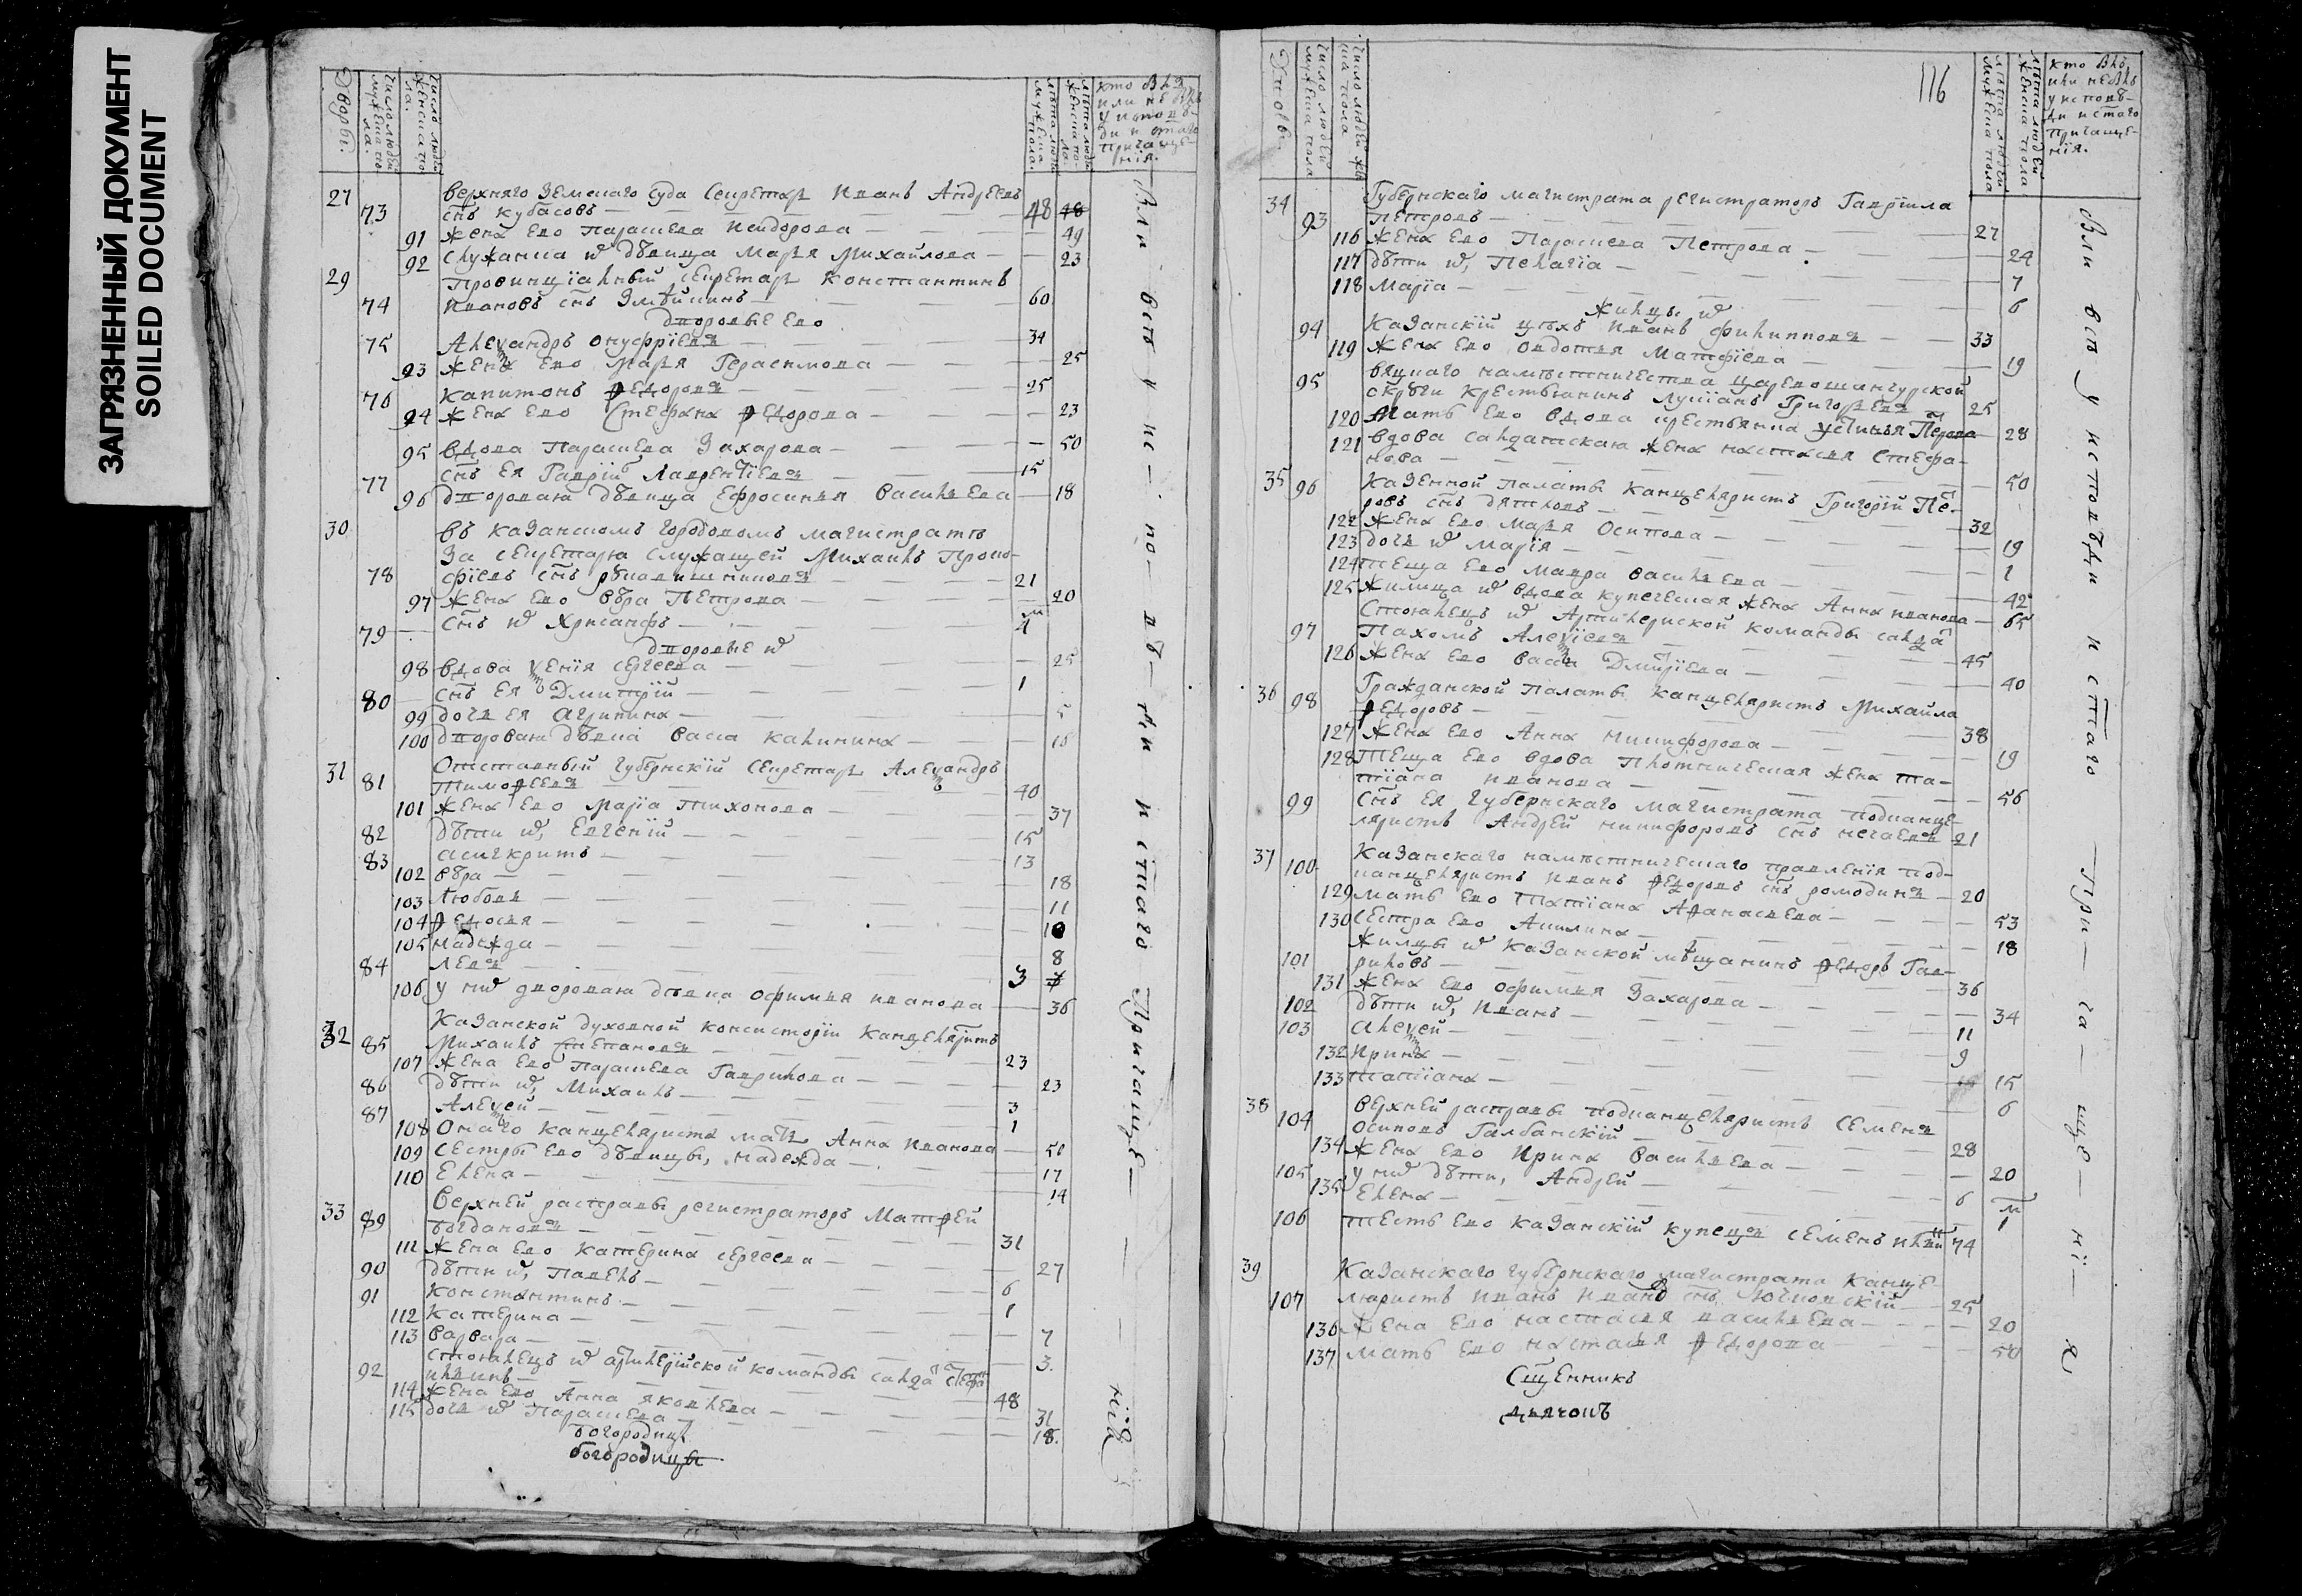 ЗАГРЯЗНЕННЫЙ ДОКУМЕНТ
SOILED DOCUMENT
Дворы.
Число людей мужеска пола.
Число людей женска пола.
Лѣта людей мужеска пола.
Лѣта людей женска пола.
кто былъ или не былъ у исповѣди и стаго причащенія.
27 верхняго Земскаго Суда Секретарь Иванъ Андреевъ
73 снъ Кубасовъ — 48 48
91 жена ево Параскева Исидорова — 49
92 Служанка ихъ дѣвица Марья Михайлова — 23
29 Провинціальный Секретарь Константинъ
74 Ивановъ снъ Змѣйинъ — 60
Дворовые ево
75 Алеѯандръ Онуфріевъ — 34
93 жена ево Марья Герасимова — 25
76 Капитонъ Ѳедоровъ — 25
94 жена ево Стефана Ѳедорова — 23
95 вдова Параскева Захарова — 50
77 снъ ея Гаврій Лаврентіевъ — 15
96 дворовая дѣвица Ефросинья Васильева — 18
30 въ Казанскомъ городовомъ магистратѣ
за секретаря служащей Михаилъ Проко-
78 фіевъ снъ — 21
97 жена ево Вѣра Петрова — 20
79 снъ ихъ Хрисанфъ — 4
Дворовые ихъ
98 вдова Ѯенія Сергеева — 25
80 снъ ея Дмитрій — 1
99 дочь ея Агрипина — 5
100 дворовая дѣвка Васса Калинина — 16
31 Отставный губернскій Секретарь Алеѯандръ
81 Тимоѳеевъ — 40
101 жена ево Марія Тихонова — 37
82 дѣти ихъ, Евгеній — 15
83 Асигкритъ — 13
102 Вѣра — 18
103 Любовь — 11
104 Ѳедосья — 10
105 Надежда — 8
84 Левъ — 3
106 у нихъ дворовая дѣвка Офимья Иванова — 36
32 Казанской духовной консисторіи Канцеляристъ
85 Михаилъ Степановъ — 23
107 жена ево Параскева Гаврилова — 23
86 дѣти ихъ, Михаилъ — 3
87 Алеѯей — 1
108 Онаго Канцеляриста мать Анна Иванова — 50
109 Сестры ево дѣвицы, Надежда — 17
110 Елена — 14
33 Верхней расправы регистраторъ Матѳей
89 Богдановъ — 31
111 жена ево Катерина Сергеева — 27
90 дѣти ихъ, Павелъ — 6
91 Константинъ — 1
112 Катерина — 7
113 Варвара — 3
стоялецъ ихъ артилерійской команды салда
92 Ильинъ — 48
114 жена ево Анна Яковлева — 31
115 дочь ихъ Параскева — 18.
богородиц
богородицы
Были всѣ у ис-по-вѣ-ди и стаго Причаще-нія
116
Дворы.
Число людей мужеска пола
Число людей женска пола
лѣта людей мужеска пола
лѣта людей женска пола
кто былъ или не былъ у исповѣди и стаго причащенія.
34 Губернскаго магистрата регистраторъ Гавріила
93 Петровъ — 27
116 жена ево Параскева Петрова — 24
117 дѣти ихъ, Пелагія — 7
118 Марія — 6
Жильцы ихъ
94 Казанскій цѣхъ Иванъ Филипповъ — 33
119 жена ево Овдотья Матфіева — 19
вяцкаго намѣстничества царевошангурской
95 округи крестьянинъ Лукіанъ Григорьевъ — 25
120 мать ево вдова крестьянка Устинья — 28
121 вдова салдатская жена Настасья Стефа-
нова — 50
35 96 Казенной палаты канцеляристъ Григорій Пе-
ровъ снъ Дятловъ — 32
122 жена ево Марья Осипова — 19
123 дочь ихъ Марія — 1
124 теща ево Мавра Васильева — 42
125 жилица ихъ вдова купеческая жена Анна Иванова — 65
Стоялецъ ихъ Артилериской команды салда
97 Пахомъ Алеѯіевъ — 45
126 жена ево Васса Дмитріева — 40
36 98 Гражданской Палаты канцеляристъ Михайла
Ѳедоровъ — 38
127 жена ево Анна Никифорова — 19
128 теща ево вдова плотническая жена Та-
тіана Иванова — 56
99 снъ ея губернскаго магистрата подканце-
ляристъ Андрей Никифоровъ снъ Нечаевъ 21
37 100 Казанскаго намѣстническаго правленія под-
канцеляристъ Иванъ Ѳедоровъ снъ Ромодинъ — 20
129 мать ево Татіана Аѳанасьева — 53
130 Сестра ево Акилина — 18
жильцы ихъ Казанской мѣщанинъ Ѳедоръ Гав-
101 риловъ — 36
131 жена ево Офимья Захарова — 34
102 дѣти ихъ, Иванъ — 11
103 Алеѯей — 9
132 Ирина — 15
133 Татіана — 6
38 104 Верхней расправы подканцеляристъ Семенъ
Осиповъ Галбанскій — 28
134 жена ево Ирина Васильева — 20
105 у нихъ дѣти, Андрей — 6
135 Елена — 1
106 тесть ево Казанскій купецъ Семенъ 74
39 Казанскаго губернскаго магистрата канце-
107 ляристъ Иванъ Ивановъ снъ — 25
136 жена ево Настасья Васильева — 20
137 мать ево Настасья Ѳедорова — 50
Сщенникъ
дьячонъ
Были всѣ у исповѣди и стаго При-ча-ще-ні-я